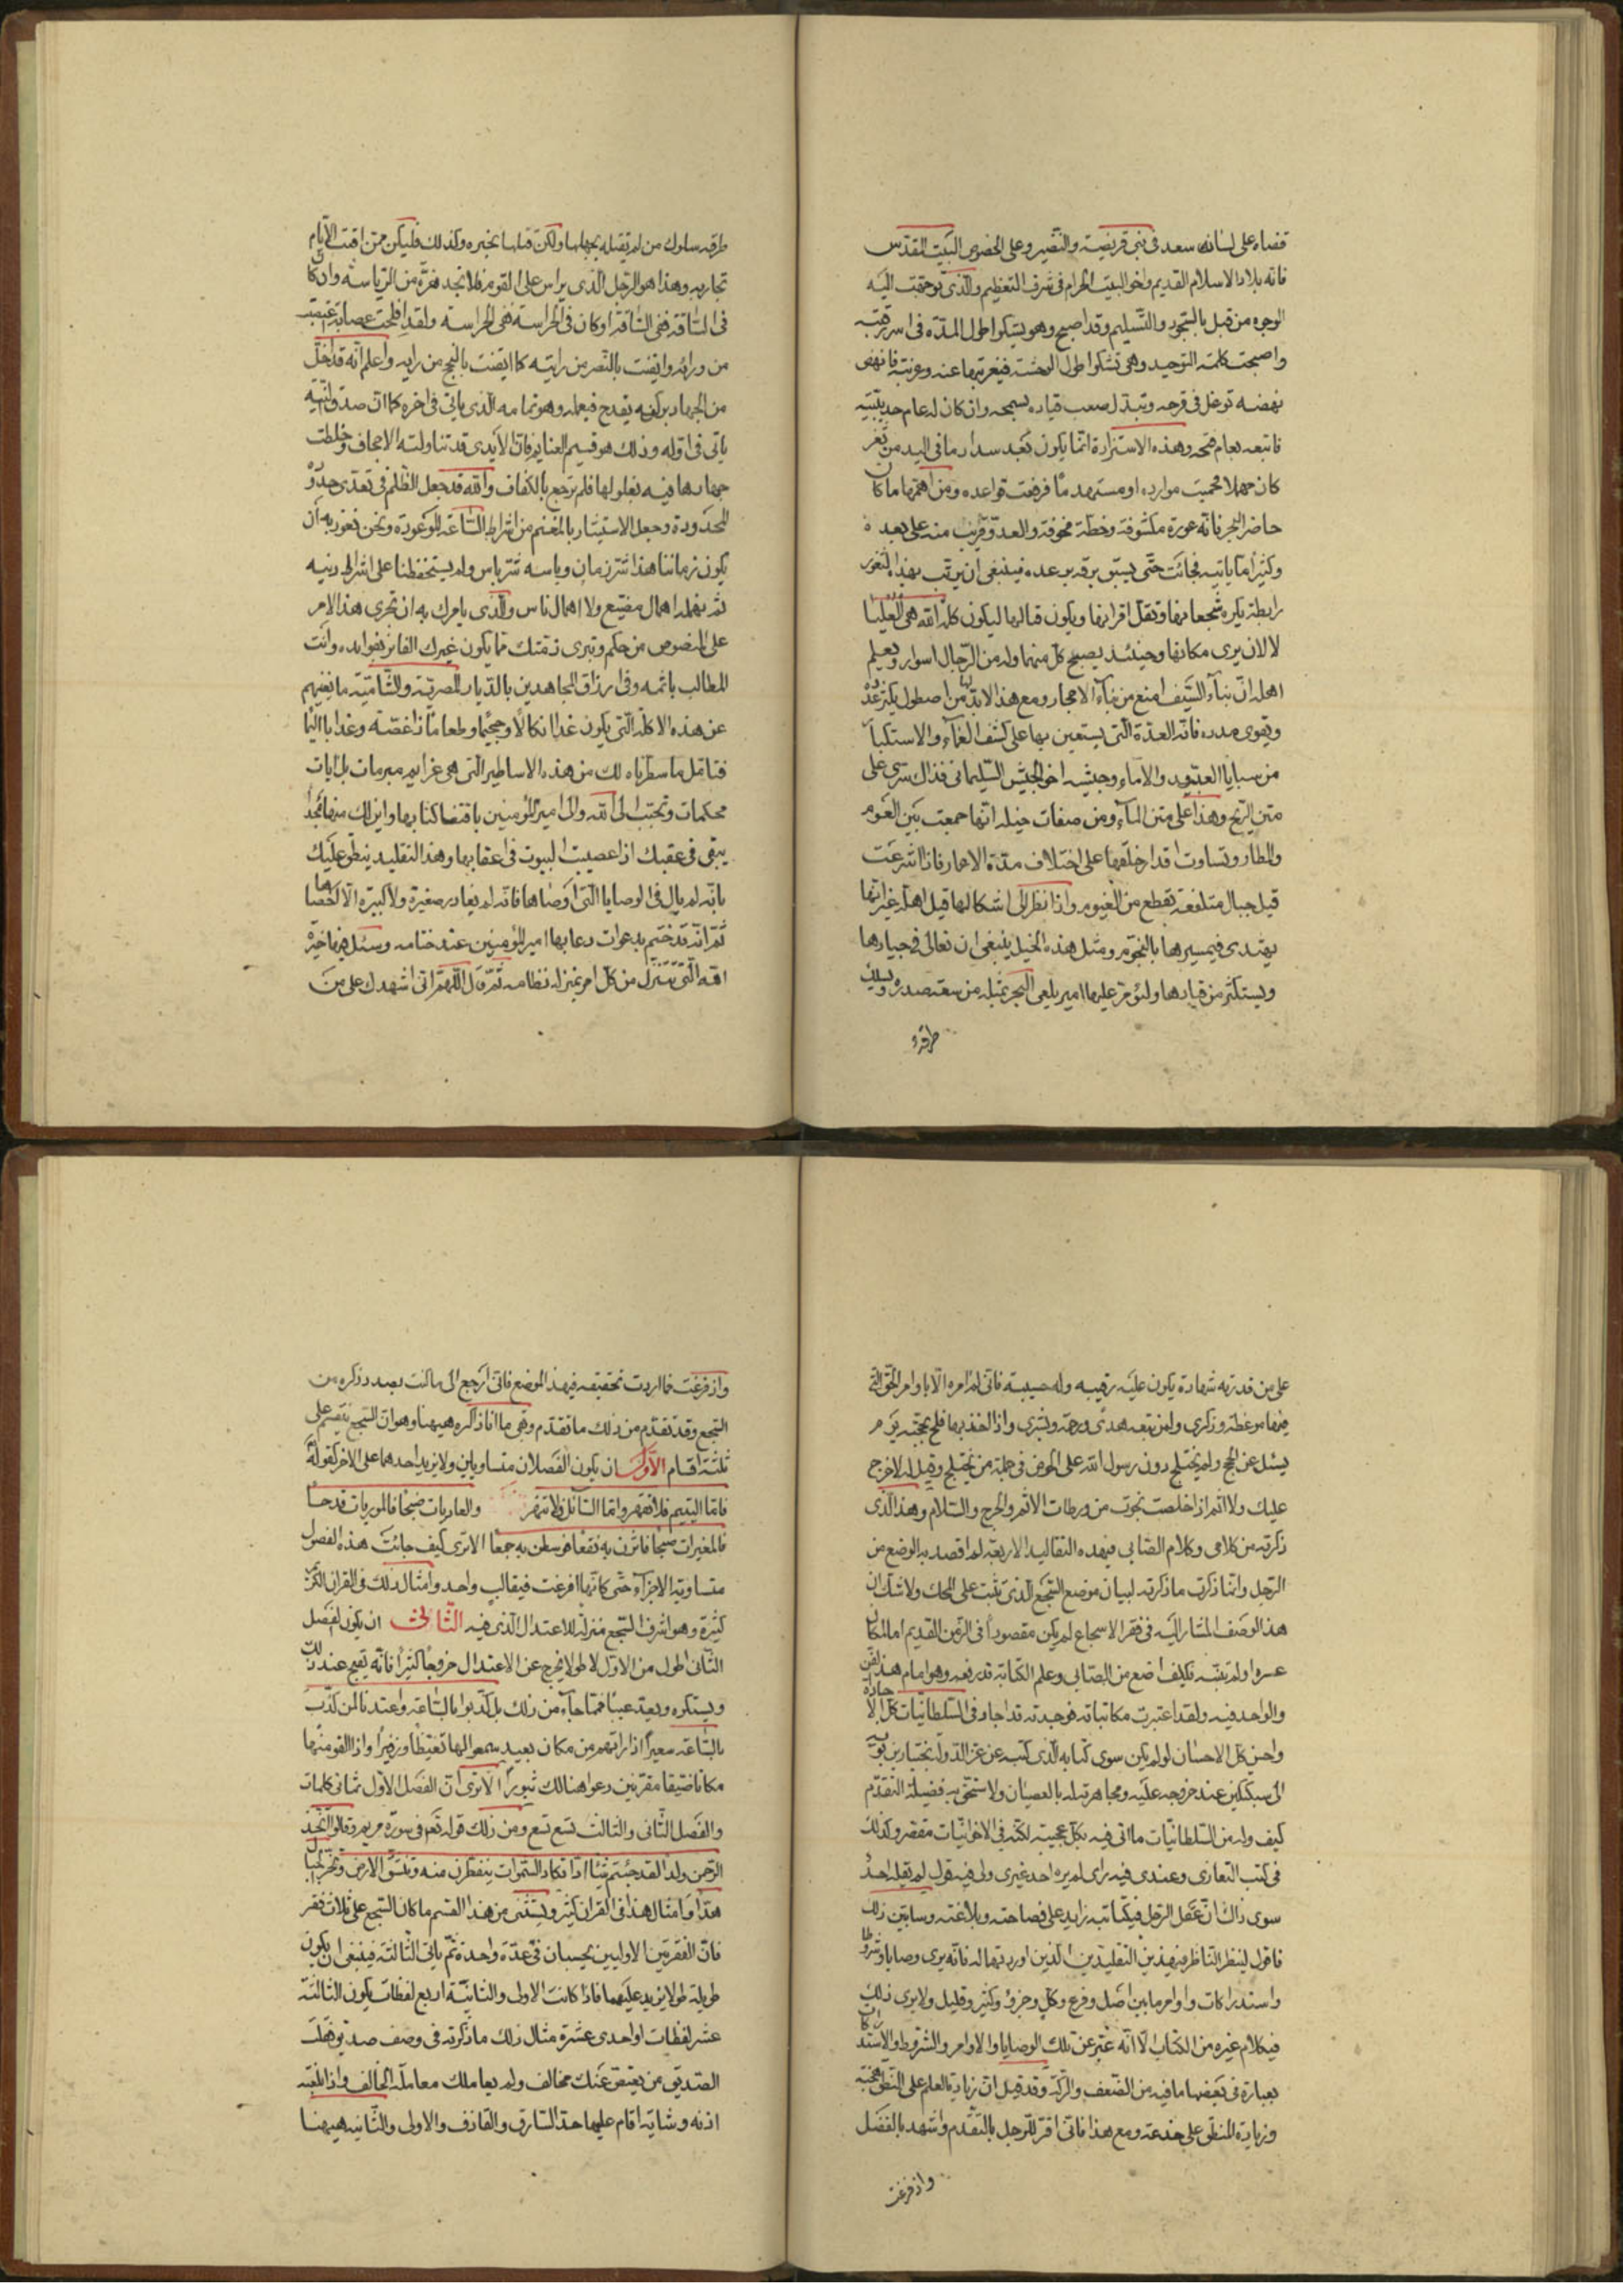 قضاه على لسانه سعد فى بنى قريضة والنضير وعلى الخصوص البيت المقدس
فانه بلاد الاسلام القديم واخو البيت الحرام فى شرف التعظيم والذى توجهت اليه
الوجوه من قبل بالسجود والتسليم وقد اصبح وهو يشكوا طول المدة فى اسر رقبته
واصبحت كلمة التوحيد وهى تشكوا طول الوحشة فى غربتها عنه وغربته فانهض
نهضه توغل فى قرحه وتبدل صعب قياده بسمحه وان كان له عام حديبية
فاتبعه بعام فتحه وهذه الاستزادة انما يكون بعد سداد ما فى اليد من ثغر
كان مهملا فحميت موارده او مستهدما فرفعت قواعده ومن اهمها ما كان
حاضر البحر فانه عورة مكشوفة وخطة مخوفة والعدو قريب منه على بعده
وكثيرا ما ياتيه فجائت حتى يسبق برقه برعده فينبغى ان يرتب بهذه الثغور
رابطة يكثر شجعانها وتقل اقرانها ويكون قتالها ليكون كلمة الله هى العليا
لا لان يرى مكانها وحينئذ يصبح كل منها وله من الرجال اسوار ويعلم
اهله ان بناء السيف امنع من بناء الاحجار ومع هذا لا بد لها من اصطول يكثر عدده
ويقوى مدده فانه العدة التى يستعين بها على كشف الغماء والاستكثار
من سبايا العبيد والاماء وجيشه اخو الجيش السليمانى فذاك يسرى على
متن الريح وهذا على متن الماء ومن صفات خيله انها جمعت بين العوم
والمطار وتساوت اقدار خلقها على اختلاف مدة الاعمار فاذا اشرعت
قيل جبال متلفعة بقطع من الغيوم واذا نظر الى اشكالها قيل اهلة غير انها
يهتدى فى مسيرها بالنجوم ومثل هذه الخيل ينبغى ان تعالى فى جيادها
ويستكثر من قيادها وليؤمر عليها امير يلقى البحر بمثله من سعة صدره ويسلك
طرقه
طرقه سلوك من لم تقتله بجهلها ولكن قتلها بخبره وكذلك فليكن ممن افنت الايام
تجاربه وهذا هو الرجل الذى يراس على القوم فلا تجد هزة من الرياسة وان كان
فى الساقة ففى الساقة او كان فى الحراسة ففى الحراسة ولقد افلحت عصابة اعتصبت
من ورائه وايقنت بالنصر من رايته كما ايقنت بالنجح من رايه واعلم انه قد اخل
من الجهاد بركن يقدح فى عمله وهو تمامه الذى ياتى فى اخره كما ان صدق النية
ياتى فى اوله وذلك هو قسيم الغنايم فان الايدى قد تناولته الاجحاف وخلطت
جهادها فيه بغلولها فلم ترجع بالكفاف والله قد جعل الظلم فى تعدى حدوده
المحدودة وجعل الاستيثار بالمغنم من اشراط الساعة الموعودة ونحن نعوذ به ان
يكون زماننا هذا شر زمان وباسه شر باس ولم يستحفظنا على اشراط دينه
ثم نهمله اهمال مضيع ولا اهمال ناس والذى يامرك به ان تجرى هذا الامر
على المنصوص من حكم وتبرى ذمتك مما يكون غيرك الفائز بفوايده وانت
المطالب باثمه وفى ارزاق المجاهدين بالديار المصرية والشامية ما يغنيهم
عن هذه الاكلة التى يكون غدا انكالا وجحيما وطعاما ذا غصة وعذابا اليما
فتامل ما سطرناه لك من هذه الاساطير التى هى عزايم مبرمات بل ايات
محكمات وتحبب الى الله والى امير المؤمنين باقتضا كتابها وابن لك منها مجدا
يبقى فى عقبك اذا اصيبت البيوت فى اعقابها وهذا التقليد ينطق عليك
بانه لم يال فى الوصايا التى اوصاها فانه لم يغادر صغيرة ولا كبيرة الا احصاها
ثم انه قد ختم بدعوات دعا بها امير المؤمنين عند ختامه وسئل فيها خيرة
الله التى تتنزل من كل امر بمنزلة نظامه ثم قال اللهم انى اشهدك على من
على من قلدته شهادة يكون عليه رقيبه وله حسيبه فانى لم امره الا باوامر الحق التى
فيها موعظة وذكرى ولمن تبعه هدى ورحمة وبشرى واذا اخذ بها فلح بحجته يوم
يسئل عن الحج ولم يختلج دون رسول الله على الحوض فى جملة من يختلج وقيل له لا حرج
عليك ولا اثم اذ اخلصت نجوت من ورطات الاثم والحرج والسلام وهذا الذى
ذكرته من كلامى وكلام الصابى فى هذه التقاليد الاربعة لم اقصد به الوضع من
الرجل وانما ذكرت ما ذكرته لبيان موضع السجع الذى يثبت على المحك ولا شك ان
هذا الوصف المشار اليه فى فقر الاسجاع لم يكن مقصودا فى الزمن القديم اما لمكان
عسره او لم تتنبه فكيف اضع من الصابى وعلم الكتابة قد رفعه وهو امام هذا الفن
والواحد فيه ولقد اعتبرت مكاتباته فوجدته قد اجاد فى السلطانيات كل الاجادة
واحسن كل الاحسان لو لم يكن سوى كتابه الذى كتبه عن عز الدولة بختيار بن بويه
الى سبكتكين عند خروجه عليه ومجاهرته له بالعصيان لاستحق به فضيلة التقدم
كيف وله من السلطانيات ما اتى فيه بكل عجيبة لكنه فى الاخوانيات مقصر وكذلك
فى كتب التعازى وعندى فيه راى لم يره احد غيرى ولى فيه قول لم يقله احد
سوى ذاك ان عقل الرجل فى كتابته زايد على فصاحته وبلاغته وسابين ذلك
فاقول لينظر الناظر فى هذين التقليدين الذين اوردتهما له فانه يرى وصايا وشروطا
واستدراكات واوامر ما بين اصل وفرع وكل وجزؤ وكثير وقليل ولا يرى ذلك
فى كلام غيره من الكتاب الا انه عبر عن تلك الوصايا والاوامر والشروط والاستدراكات
بعبارة فى بعضها ما فيه من الضعف والركة وقد قيل ان زيادة العلم على المنطق هجنة
وزيادة المنطق على خدعة ومع هذا فانى اقر للرجل بالتقدم واشهد بالفضل
واذ فرغت
واذ فرغت مما اردت تحقيقه فى هذا الموضع فانى ارجع الى ما كنت بصدد ذكره من
السجع وقد تقدم من ذلك ما تقدم وبقى ما انا ذاكره ههنا وهو ان السجع ينقسم على
ثلثة اقسام الاول ان يكون الفصلان متساويان ولا يزيد احدهما على الاخر كقوله تعالى
فاما اليتيم فلا تقهر واما السائل فلا تنهر والعاديات ضبحا فالموريات قدحا
فالمغيرات صبحا فاثرن به نقعا فوسطن به جمعا الا ترى كيف جائت هذه الفصول
متساوية الاجزاء حتى كانها افرغت فى قالب واحد وامثال ذلك فى القران الكريم
كثيرة وهو اشرف السجع منزلة للاعتدال الذى فيه الثانى ان يكون الفصل
الثانى اطول من الاول لا طولا يخرج عن الاعتدال خروجا كثيرا فانه يقبح عند ذلك
ويستكره ويعد عيبا فمما جاء من ذلك بل كذبوا بالساعة واعتدنا لمن كذب
بالساعة سعيرا اذا راتهم من مكان بعيد سمعوا لها تغيظا وزفيرا واذا القو منها
مكانا ضيقا مقرنين دعوا هنالك ثبورا الا ترى ان الفصل الاول ثمانى كلمات
والفصل الثانى والثالث تسع تسع ومن ذلك قوله تعم فى سورة مريم وقالوا اتخذ
الرحمن ولدا لقد جئتم شيئا ادا تكاد السموات يتفطرن منه وتنشق الارض وتخر الجبال
هدا وامثال هذا فى القران كثير ويستثنى من هذا القسم ما كان السجع على ثلاث فقر
فان الفقرتين الاوليين يحسبان فى عدة واحدة ثم ياتى الثالثة فينبغى ان يكون
طويلة طولا يزيد عليهما فاذا كانت الاولى والثانية اربع لفظات يكون الثالثة
عشر لفظات او احدى عشرة مثال ذلك ما ذكرته فى وصف صديق فقلت
الصديق من يعتض عنك مخالف ولم يعاملك معاملة الحالف واذا بلغته
اذنه وشاية اقام عليها حد السارق والقاذف والاولى والثانية ههنا